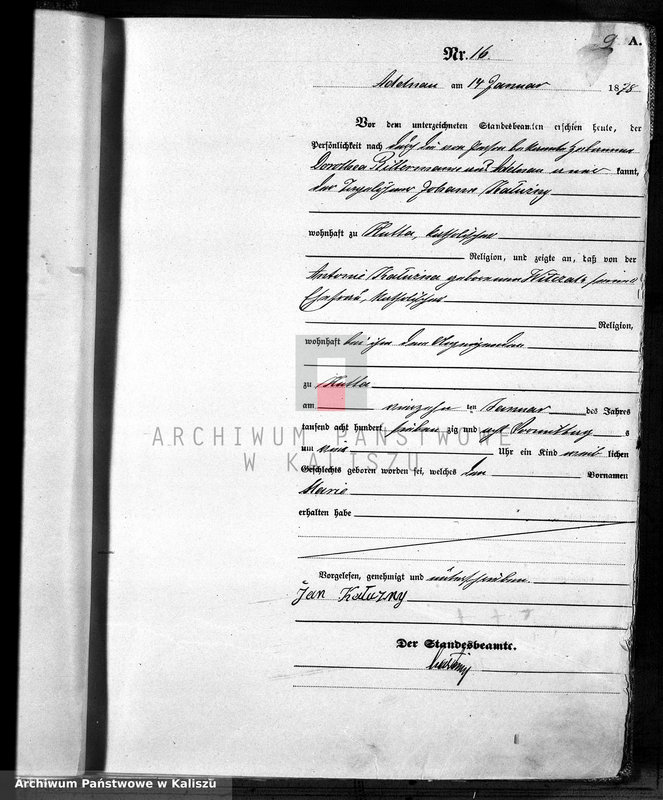 9 A.
Nr. 16.
Adelnau am 14 Januar 1878
Vor dem unterzeichneten Standesbeamten erschien heute, der
Persönlichkeit nach durch die von Person bekannte Hebamme
Dorothea aus Adelnau kannt,
der Johann Kałużny
wohnhaft zu Kutta, katholischer
Religion, und zeigte an, daß von der
Antonie Kałużna geborenen seiner
Ehefrau, katholischer
Religion,
wohnhaft bei ihm dem
zu Kutta
am ten Januar des Jahres
tausend acht hundert sieben zig und acht Vormittag s
um Uhr ein Kind weib lichen
Geschlechts geboren worden sei, welches den Vornamen
Marie
erhalten habe
Vorgelesen, genehmigt und unterschrieben.
Jan Kałużny
Der Standesbeamte.
ARCHIWUM PAŃSTWOWE
W KALISZU
Archiwum Państwowe w Kaliszu